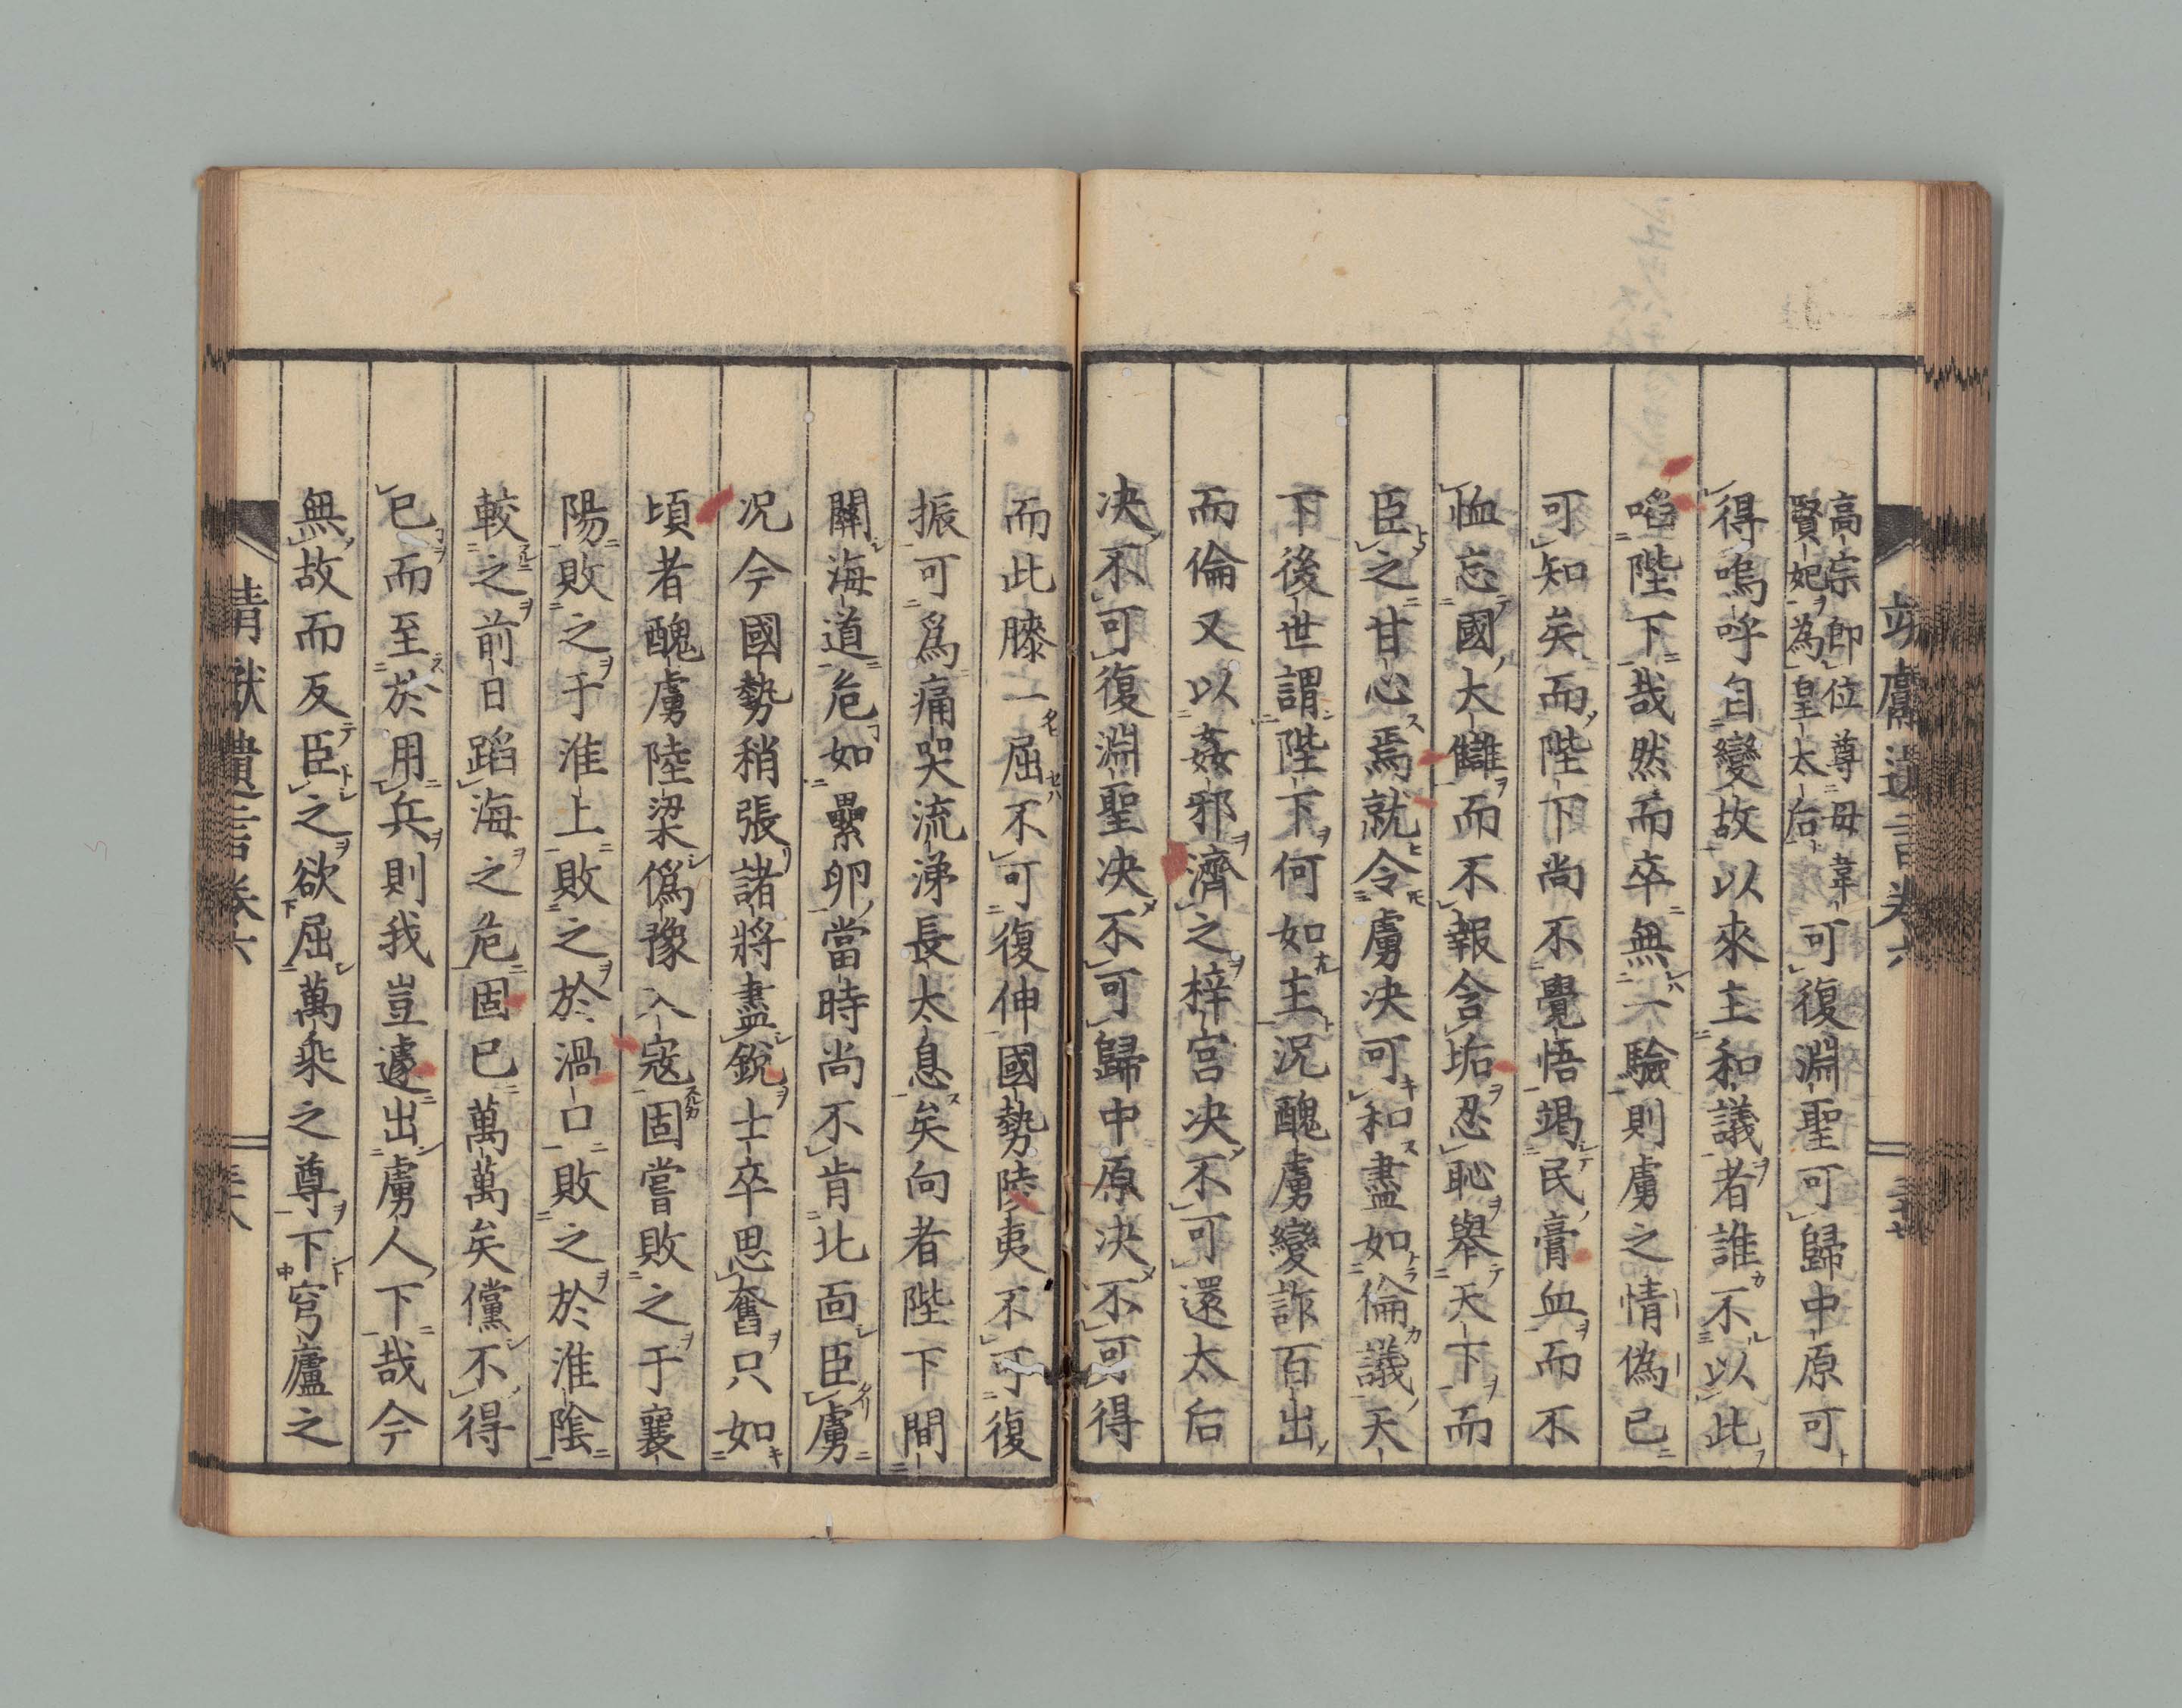 高宗即位尊母韋
賢妃為皇太后
可復淵聖可歸中原可
得嗚呼自變故以來主和議者誰不以此
啗陛下哉然而卒無一驗則虜之情偽已
可知矣而陛下尚不覺悟竭民膏血而不
恤忘國大讎而不報含垢忍恥舉天下而
臣之甘心焉就令虜决可和盡如倫議天
下後世謂陛下何如主況醜虜變詐百出
而倫又以姦邪濟之梓宮决不可還太后
决不可復淵聖决不可歸中原决不可得
而此膝一屈不可復伸國勢陵夷不可復
振可爲痛哭流涕長太息矣向者陛下間
關海道危如累卵當時尚不肯北面臣虜
況今國勢稍張諸將盡銳士卒思奮只如
頃者醜虜陸梁僞豫入寇固嘗敗之于襄
陽敗之于淮上敗之於渦口敗之於淮陰
較之前日蹈海之危固已萬萬矣儻不得
已而至於用兵則我豈遽出虜人下哉今
無故而反臣之欲屈萬乘之尊下穹廬之
靖獻遺言卷六